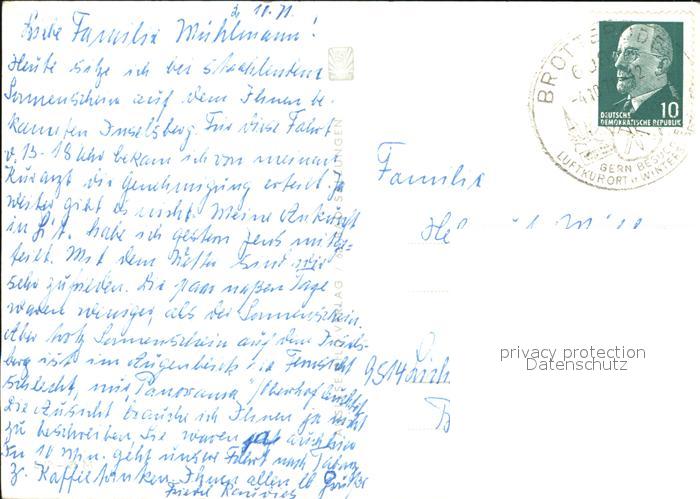 2.10.71.
Liebe Familie Mühlmann!
Heute sitze ich bei strahlendem
Sonnenschein auf dem Ihnen be-
kannten Inselsberg. Für diese Fahrt
v. 13-18 Uhr bekam ich von meinem
Kurarzt die Genehmigung erteilt. Ja
weiter gibt es nicht. Meine Ankunft
in habe ich gestern Jens mitge-
teilt. Mit dem Wetter sind wir
sehr zufrieden. Die paar nassen Tage
waren weniger, als der Sonnenschein.
Aber trotz Sonnenschein auf dem Insels-
berg ist im Augenblick die Fernsicht
schlecht, mit "Panorama" Oberhof
Die Aussicht brauche ich Ihnen ja nicht
zu beschreiben, Sie waren ja auch hier
In 10 Min. geht unsere Fahrt nach Tabarz
z. Kaffeetrinken. Ihnen allen lb Grüße
Familie
9514
BROTTERODE
-4.10.71-12
GERN BESUCHTER
LUFTKURORT u. WINTERS
10
DEUTSCHE
DEMOKRATISCHE REPUBLIK
VERLAG
privacy protection
Datenschutz